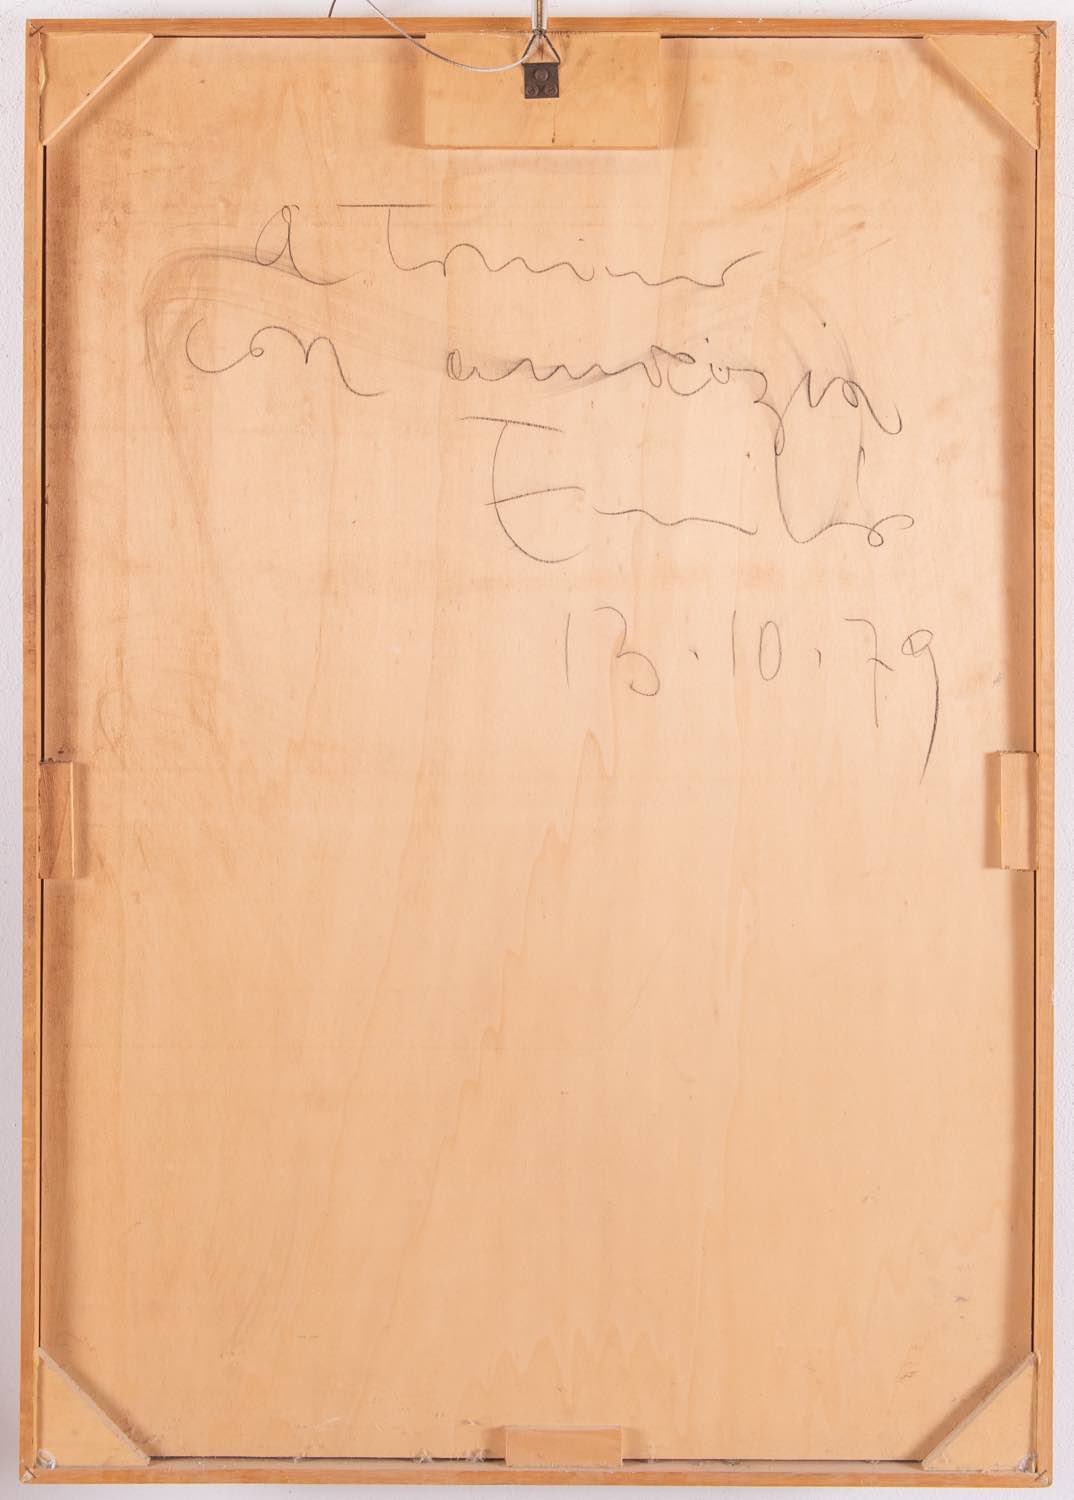 A Tonino
con amicizia
Emilio
13.10.79